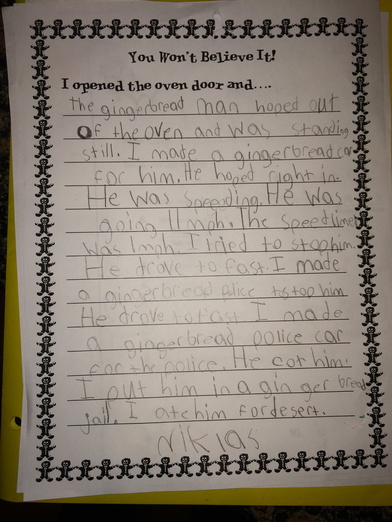 You Won't Believe It!
I opened the oven door and....
the gingerbread man hoped out
Of the oven and was standing
still. I made a gingerbread car
for him. He hoped right in.
He was speeding. He was
going 11 mph. The speed limet
was 1mph. I tried to stop him.
He drove to fast. I made
a gingerbread police to stop him
He drove to fast I made
a gingerbread police car
for the police. He cot him.
I put him in a gin ger bread
jail. I ate him for desert.
Niklas